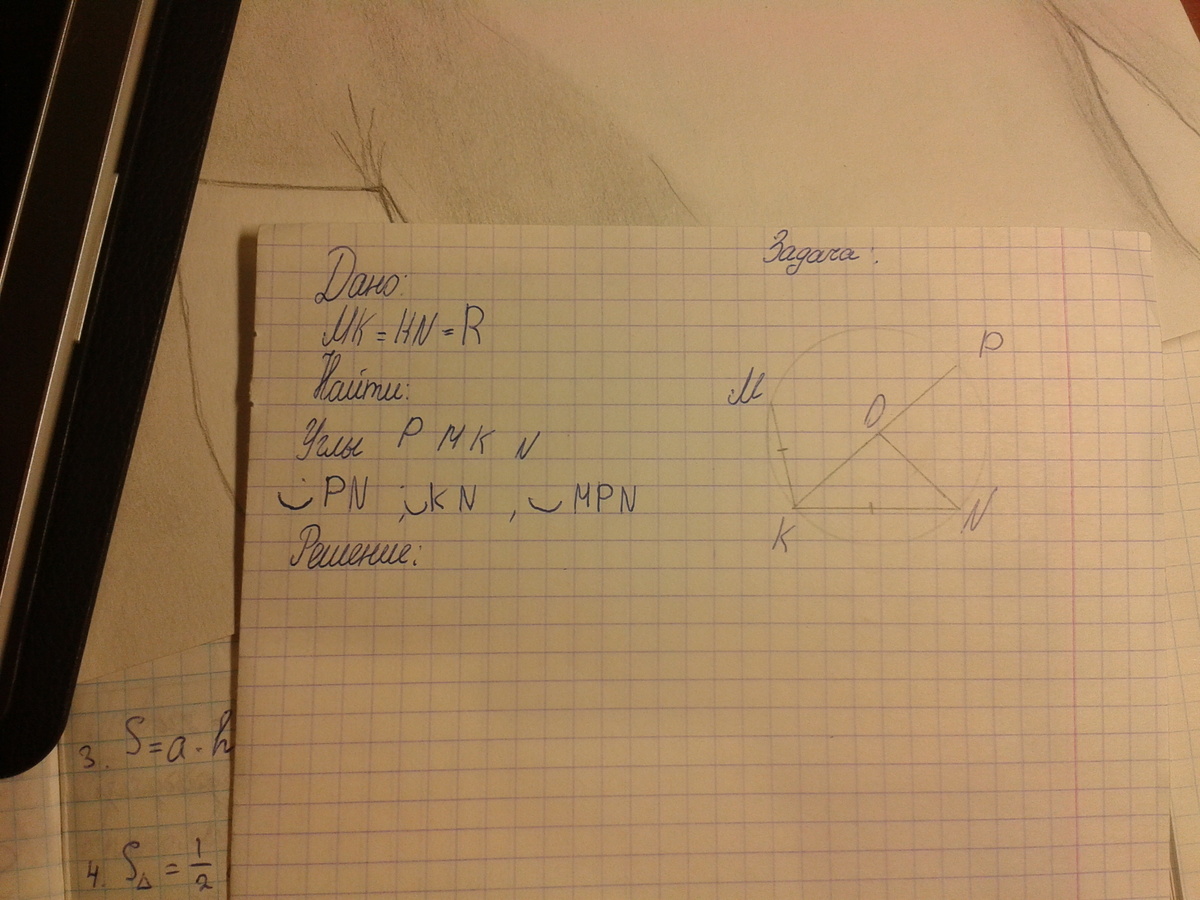 Задача:
Дано:
MK = KN = R
Найти:
Углы P M K N
◡ PN ; ◡ KN , ◡ MPN
Решение:
P
M
O
K
N
3. S = a · h
4. S△ = 1/2